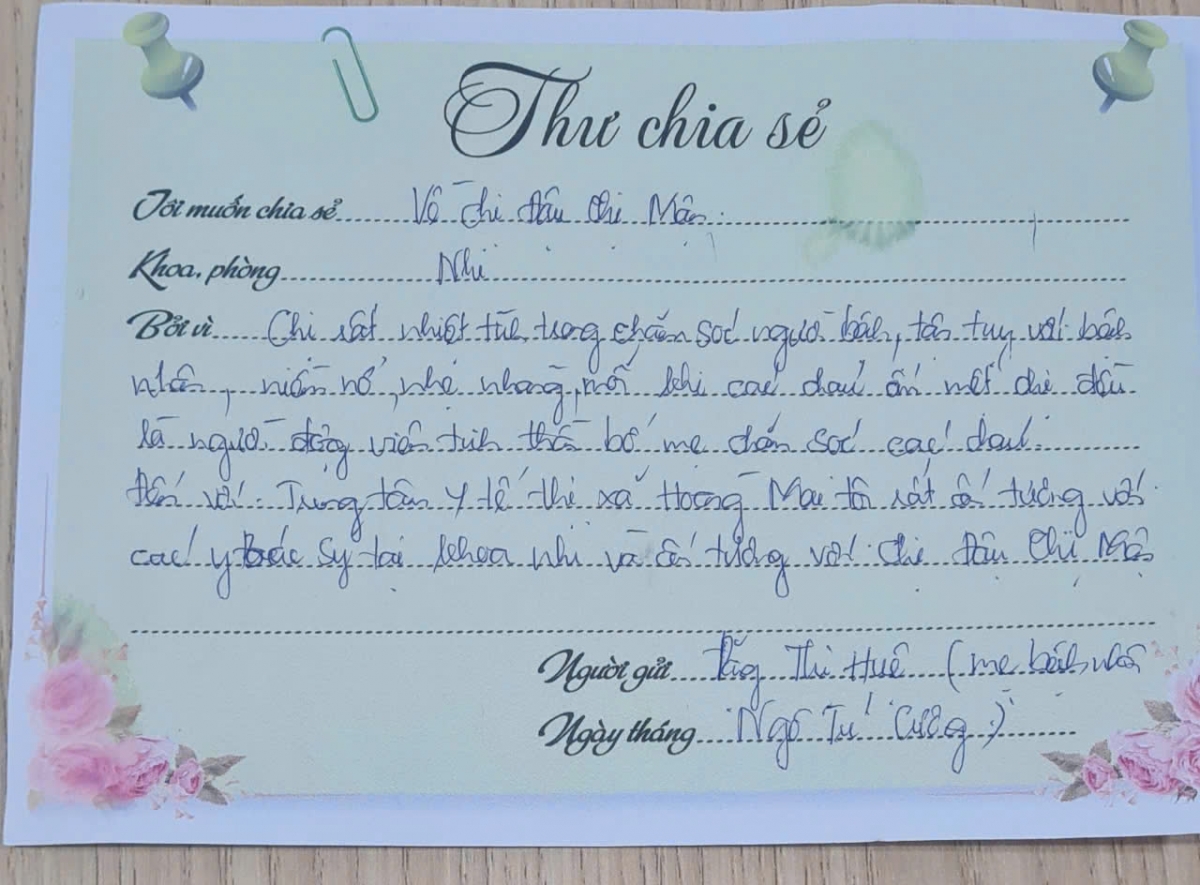 Thư chia sẻ
Tôi muốn chia sẻ Về chị Đậu Thị Mận.
Khoa, phòng Nhi
Bởi vì Chị rất nhiệt tình trong chăm sóc người bệnh, tận tụy với bệnh
nhân, niềm nở, nhẹ nhàng, mỗi khi các cháu ốm mệt chị đều
là người động viên tinh thần bố mẹ chăm sóc các cháu.
Đến với Trung tâm y tế thị xã Hoàng Mai tôi rất ấn tượng với
các y bác sỹ tại khoa nhi và ấn tượng với chị Đậu Thị Mận
Người gửi Đặng Thị Huê (mẹ bệnh nhân
Ngày tháng Ngô Tú Cường)